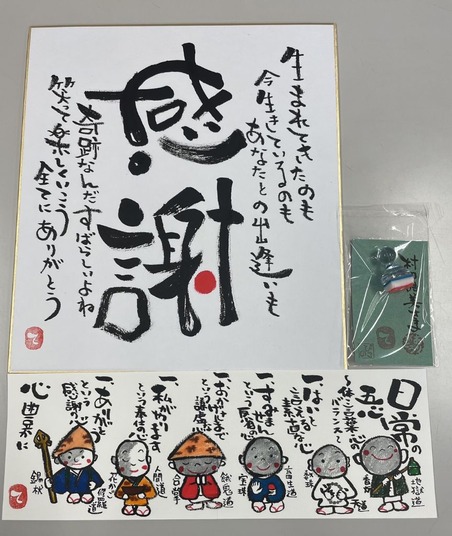 生まれてきたのも
今生きているのも
あなたとの出逢いも
感謝
奇跡なんだすばらしいよね
笑って楽しくいこう
全てにありがとう
日常の
五心
地獄道
天道
一、はいという
素直な心
畜生道
一、すみません
という反省の心
宝珠
餓鬼道
一、おかげさまで
という謙虚な心
合掌
人間道
一、私がします
という奉仕の心
修羅道
一、ありがとう
という
感謝の心
錫杖
心豊かに